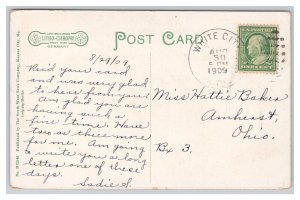 LITHO-CHROME
GERMANY
POST CARD
WHITE CITY
AUG
30
5 PM
1909
8/29/09
Rec'd your card
and was very glad
to hear from you.
Am glad you are
having such a
fine time. Have
two or three more
for me. Am going
to write you a long
letter one of these
days.
Sadie S.
Miss Hattie Baker
Amherst,
Ohio.
Bx 3.